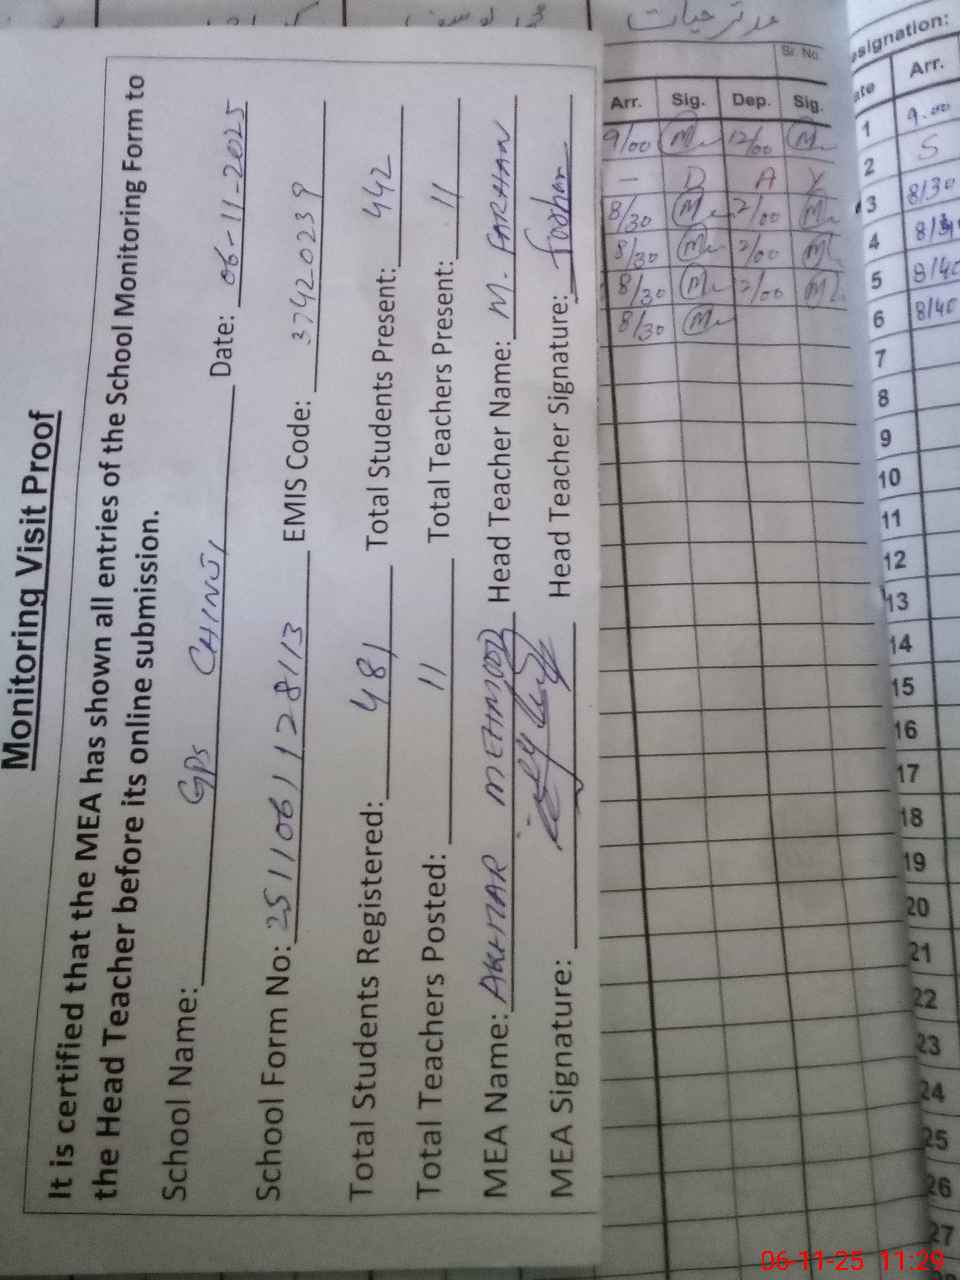 Monitoring Visit Proof
It is certified that the MEA has shown all entries of the School Monitoring Form to
the Head Teacher before its online submission.
School Name: GPS CHINJI Date: 06-11-2025
School Form No: 2511061128113 EMIS Code: 37420239
Total Students Registered: 481 Total Students Present: 442
Total Teachers Posted: 11 Total Teachers Present: 11
MEA Name: AKHTAR MEHMOOD Head Teacher Name: M. FARHAN
MEA Signature: Head Teacher Signature: Farhan
Sr. No.
Arr. Sig. Dep. Sig.
9/00 12/00
— D A Y
8/30 2/00
8/30 2/00
8/30 2/00
8/30
esignation:
ate Arr.
1 9.00
2 S
3 8/30
4
5 8/40
6 8/40
7
8
9
10
11
12
13
14
15
16
17
18
19
20
21
22
23
24
25
26
27
06-11-25 11:29